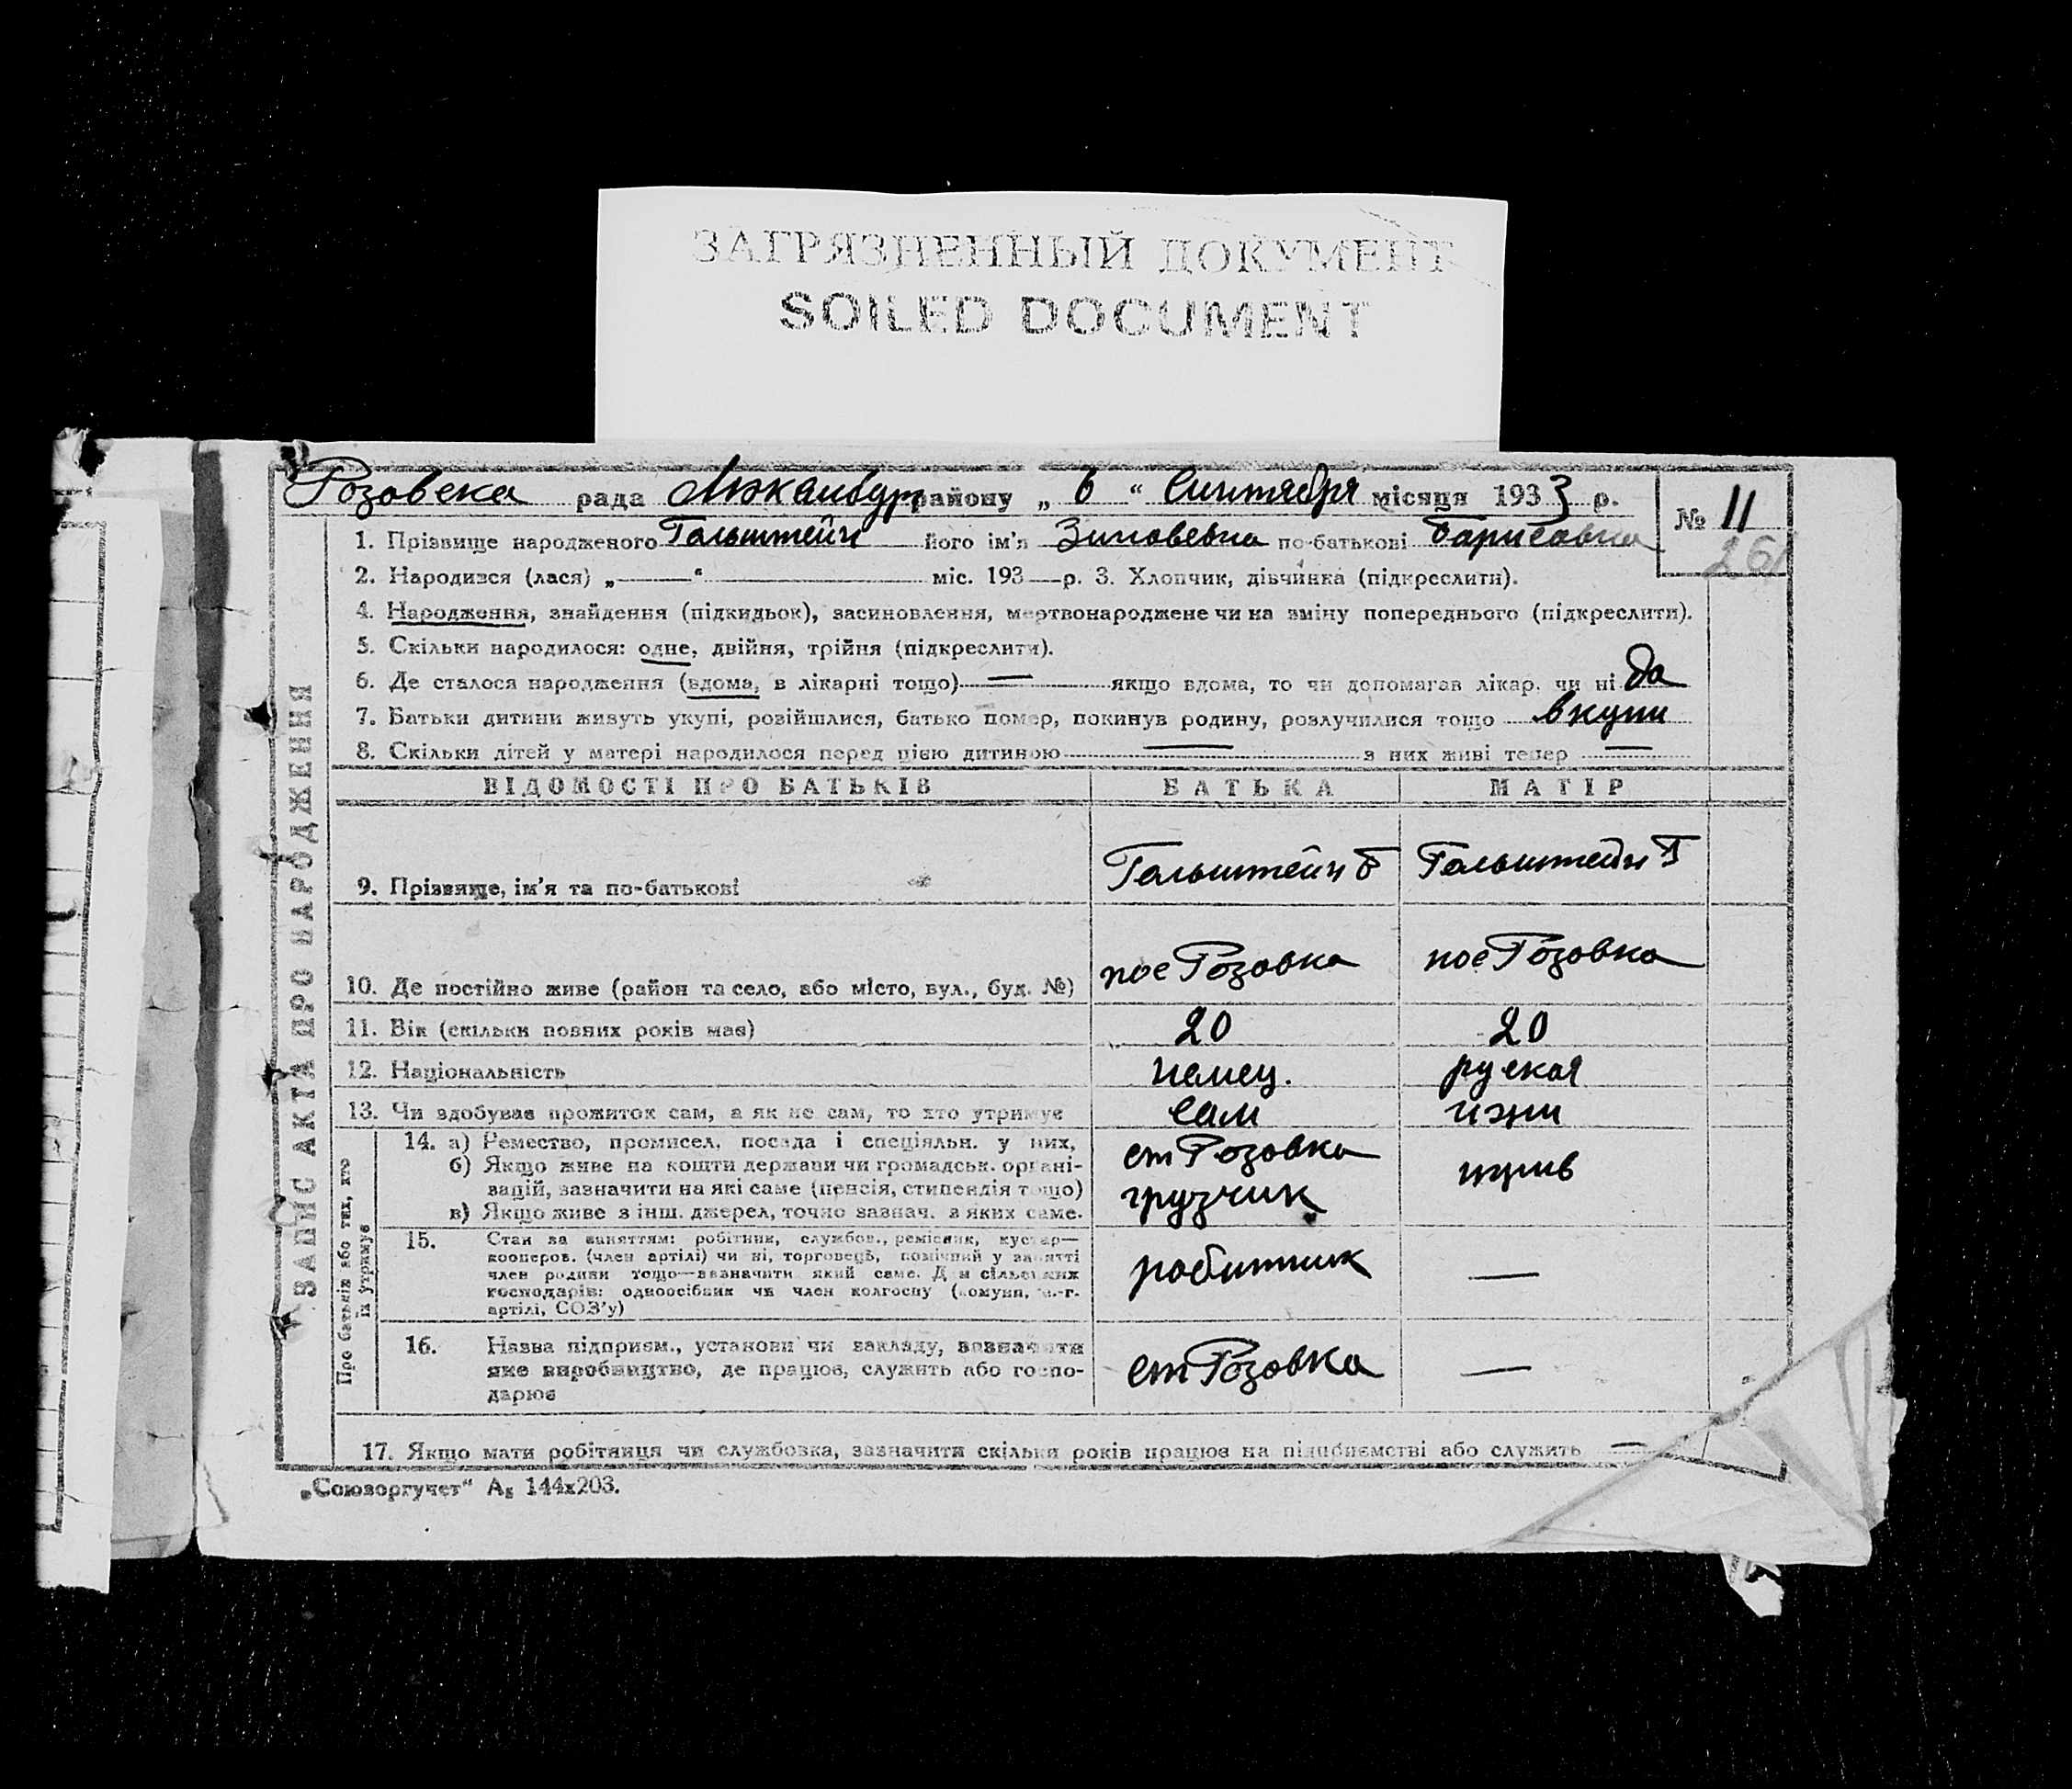 ЗАГРЯЗНЕННЫЙ ДОКУМЕНТ
SOILED DOCUMENT
Розовска рада Люксанбург району „ 6 “ Синтября місяця 1933 р.
№ 11
261
ЗАПИС АКТА ПРО НАРОДЖЕННЯ
1. Прізвище народженого Гольштейн його ім’я Зиновевна по-батькові Барисовна
2. Народився (лася) „—“ — міс. 193—р. 3. Хлопчик, дівчинка (підкреслити).
4. Народження, знайдення (підкидьок), засиновлення, мертвонароджене чи на зміну попереднього (підкреслити).
5. Скільки народилося: одне, двійня, трійня (підкреслити).
6. Де сталося народження (вдома, в лікарні тощо) — якщо вдома, то чи допомагав лікар. чи ні да
7. Батьки дитини живуть укупі, розійшлися, батько помер, покинув родину, розлучилися тощо вкупи
8. Скільки дітей у матері народилося перед цією дитиною — з них живі тепер —
ВІДОМОСТІ ПРО БАТЬКІВ БАТЬКА МАТІР
9. Прізвище, ім’я та по-батькові Гольштейн Б Гольштейн
10. Де постійно живе (район та село, або місто, вул., буд. №) пос Розовка пос Розовка
11. Вік (скільки повних років має) 20 20
12. Національність немец. руская
13. Чи здобував прожиток сам, а як не сам, то хто утримує сам
Про батьків або тих, хто їх утримує
14. а) Ремество, промисел, посада і спеціяльн. у них,
б) Якщо живе на кошти держави чи громадськ. органі-
зацій, зазначити на які саме (пенсія, стипендія тощо)
в) Якщо живе з інш. джерел, точно зазнач. з яких саме.
ст Розовка
грузчик
15. Стан за заняттям: робітник, службов., ремісник, кустар—
кооперов. (член артілі) чи ні, торговець, помічний у занятті
член родини тощо—зазначити який саме. Для сільських
господарів: одноосібник чи член колгоспу (комуни, с.-г.
артілі, СОЗ’у)
робитник —
16. Назва підприєм., установи чи закладу, зазначити
яке виробництво, де працює, служить або госпо-
дарює
ст Розовка —
17. Якщо мати робітниця чи службовка, зазначити скільки років працює на підприємстві або служить —
„Союзоргучет“ А₅ 144х203.